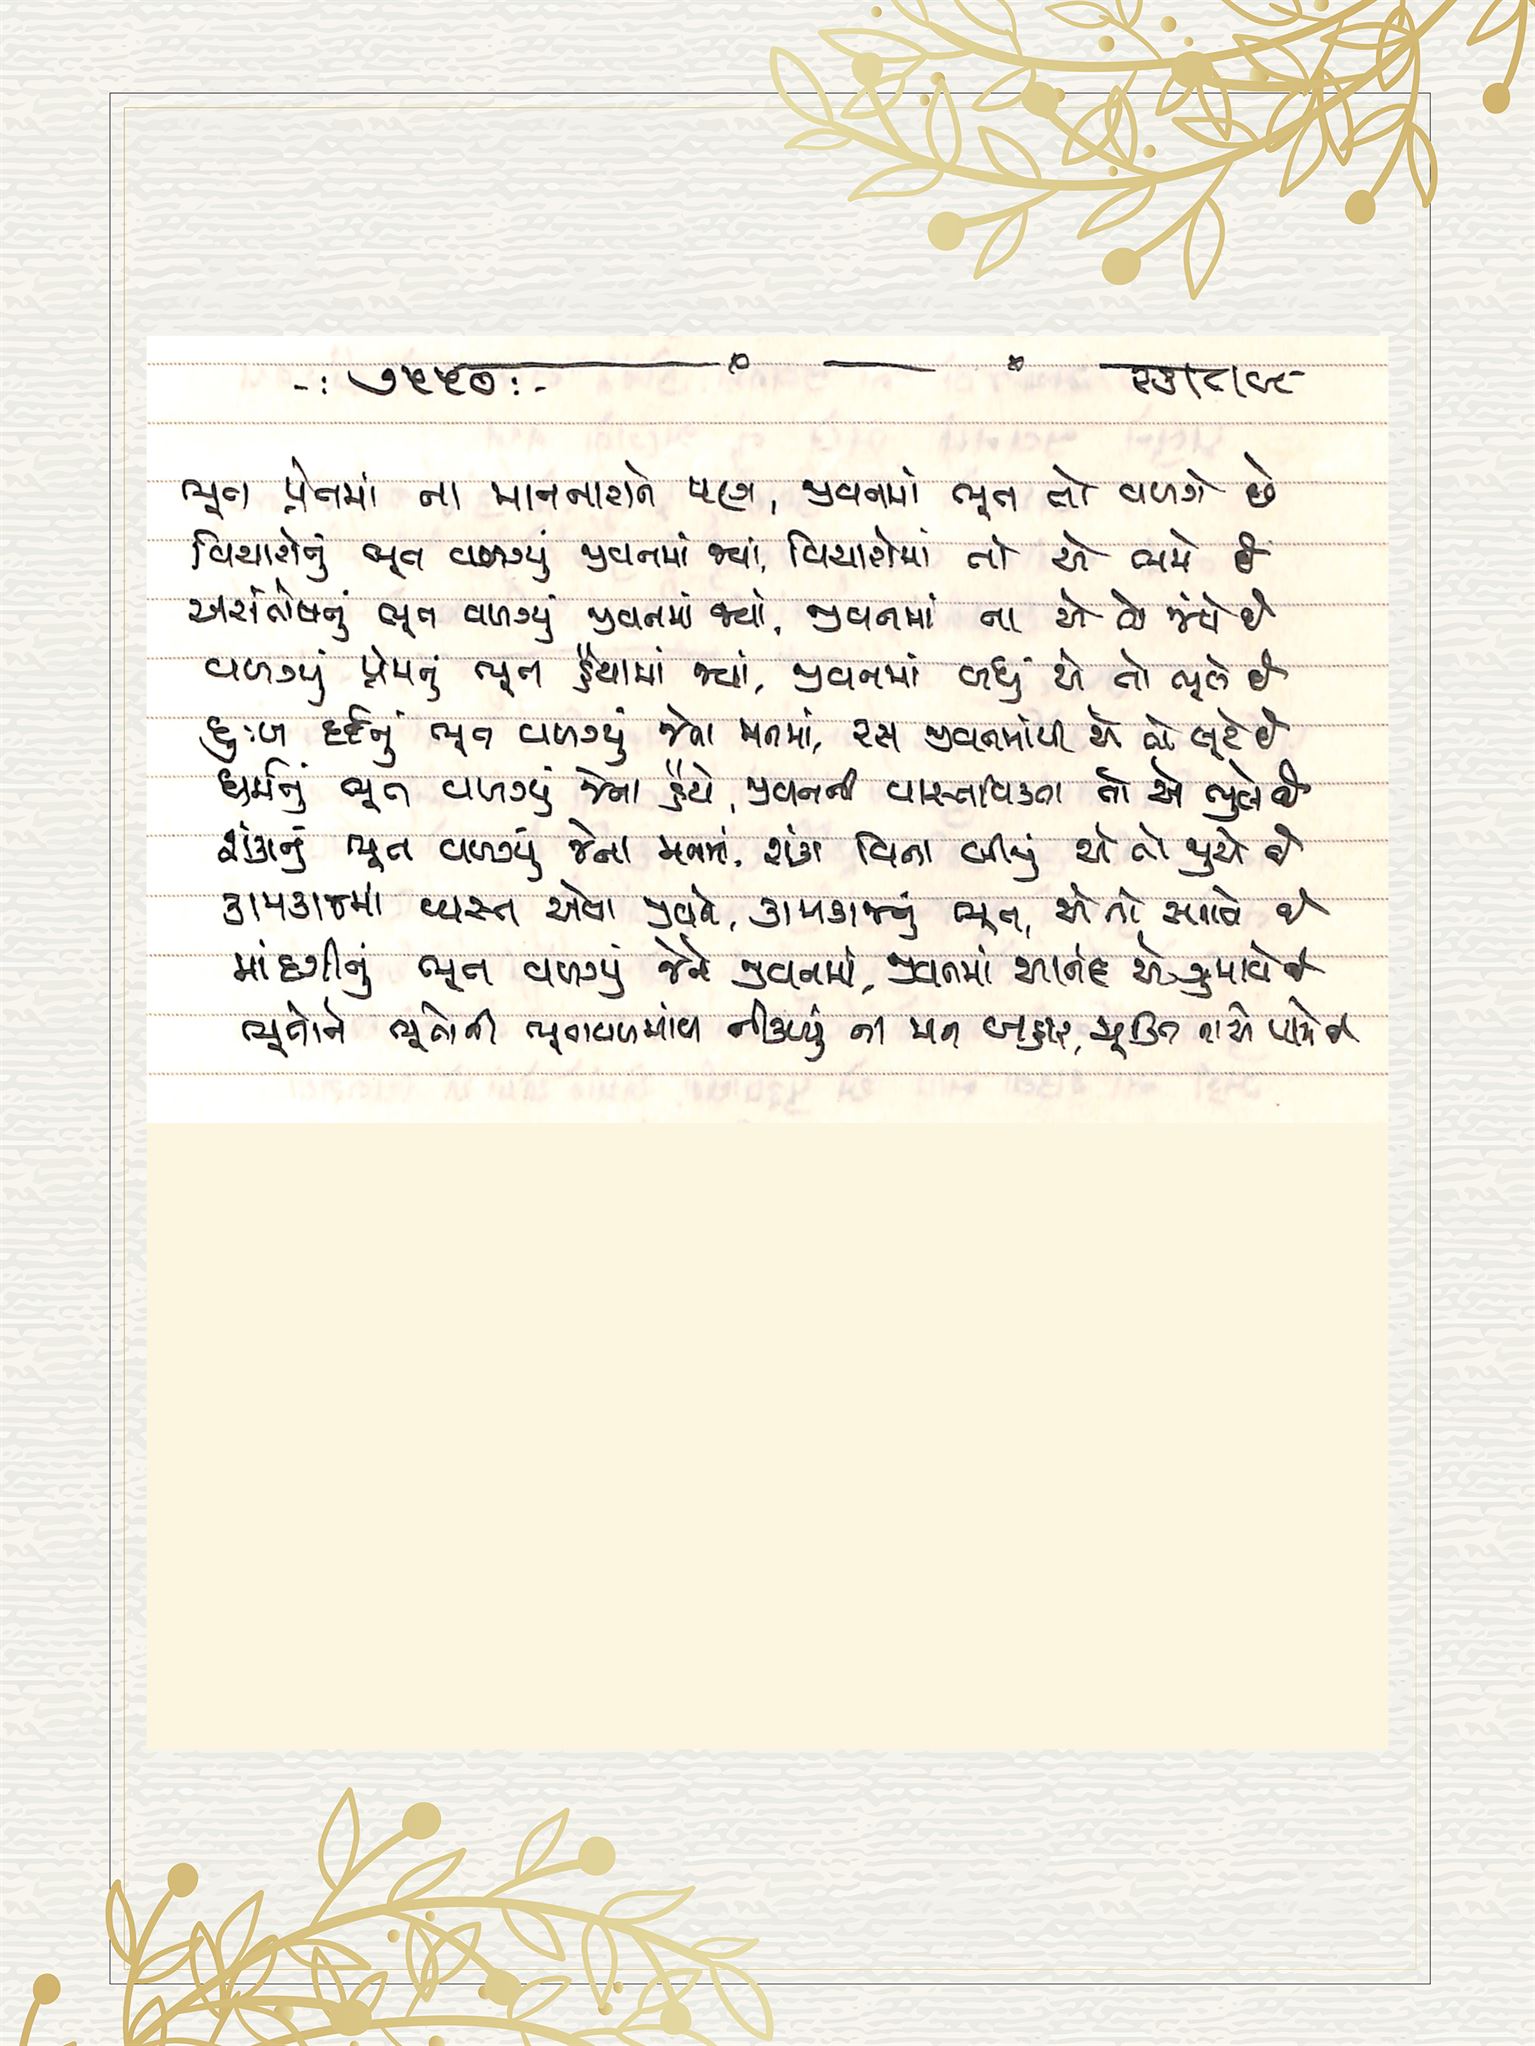 -: ૭૫૫૦ :- ૨૩/૮/૯૮
ભૂત પ્રેતમાં ના માનનારાને પણ, જીવનમાં ભૂત તો વળગે છે
વિચારોનું ભૂત વળગ્યું જીવનમાં જ્યાં, વિચારોમાં તો એ ભમે છે
અસંતોષનું ભૂત વળગ્યું જીવનમાં જ્યાં, જીવનમાં ના એ તો જંપે છે
વળગ્યું પ્રેમનું ભૂત હૈયામાં જ્યાં, જીવનમાં બધું એ તો ભૂલે છે
દુઃખ દર્દનું ભૂત વળગ્યું જેના મનમાં, રસ જીવનમાંથી એ તો લૂંટે છે
ધર્મનું ભૂત વળગ્યું જેના હૈયે, જીવનની વાસ્તવિકતા તો એ ભુલે છે
શંકાનું ભૂત વળગ્યું જેના મનમાં, શંકા વિના બીજું એ તો જુએ છે
કામકાજમાં વ્યસ્ત એવા જીવને, કામકાજનું ભૂત, એ તો સતાવે છે
માંદગીનું ભૂત વળગ્યું જેને જીવનમાં, જીવનમાં આનંદ એ ગુમાવે છે
ભૂતોને ભૂતોની ભૂતાવળમાંથી નીકળ્યું ના મન બહાર, મુક્તિ ના એ પામે છે